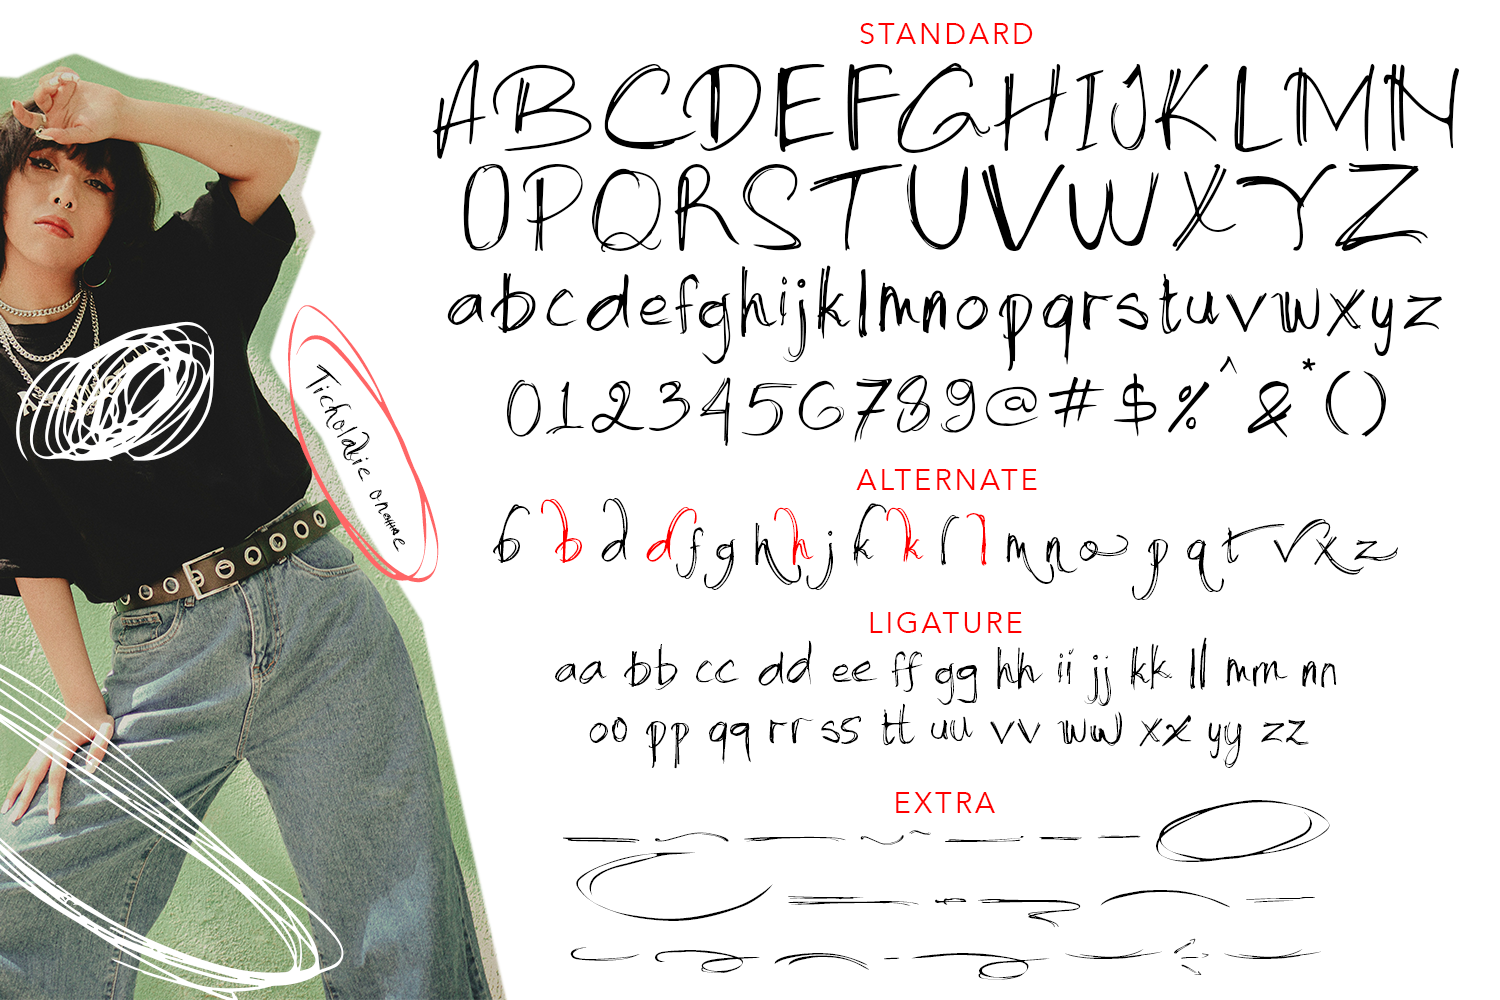 STANDARD
ABCDEFGHIJKLMN
OPQRSTUVWXYZ
abcdefghijklmnopqrstuvwxyz
0123456789@#$%^&*()
Ticholatie
ALTERNATE
b b d d f g h h j k k l l m n o p q t v x z
LIGATURE
aa bb cc dd ee ff gg hh ii jj kk ll mm nn
oo pp qq rr ss tt uu vv ww xx yy zz
EXTRA